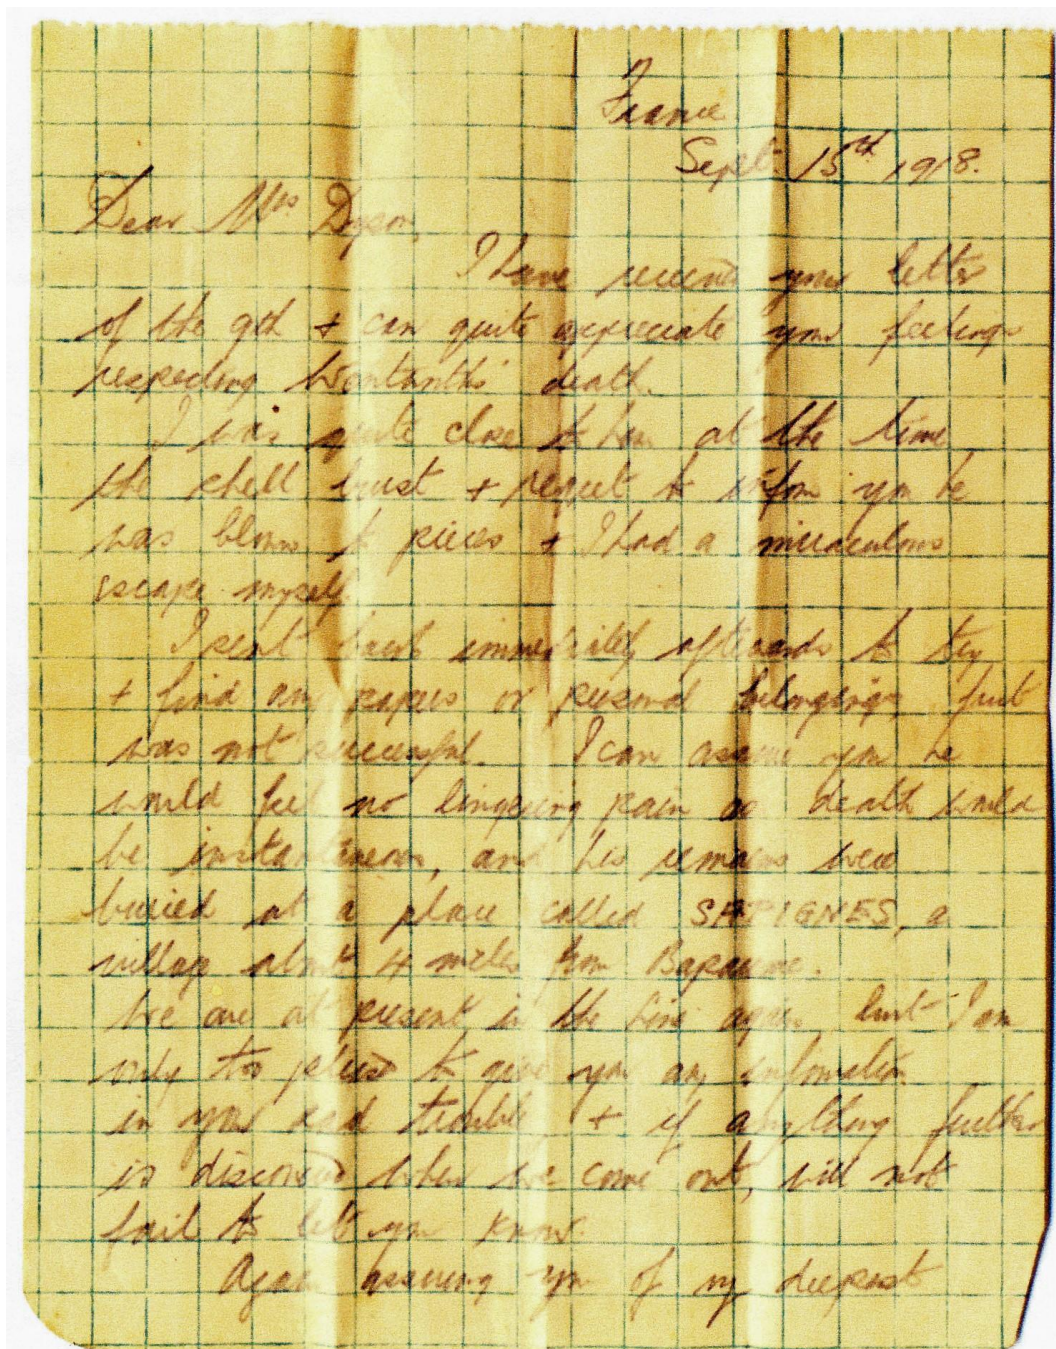 France
Sept. 15th 1918.
Dear Mrs Dyson,
I have received your letter
of the 9th + can quite appreciate your feelings
respecting death.
I was quite close to him at the time
the shell burst + regret to inform you he
was blown to pieces + I had a miraculous
escape myself.
I sent back immediately afterwards to try
+ find any papers or personal belongings, but
was not successful. I can assure you he
would feel no lingering pain as death would
be instantaneous, and his remains were
buried at a place called SAPIGNIES, a
village about 4 miles from Bapaume.
We are at present in the line again, but I am
only too pleased to give you any information
in your sad trouble, + if anything further
is discovered when we come out, will not
fail to let you know.
Again assuring you of my deepest